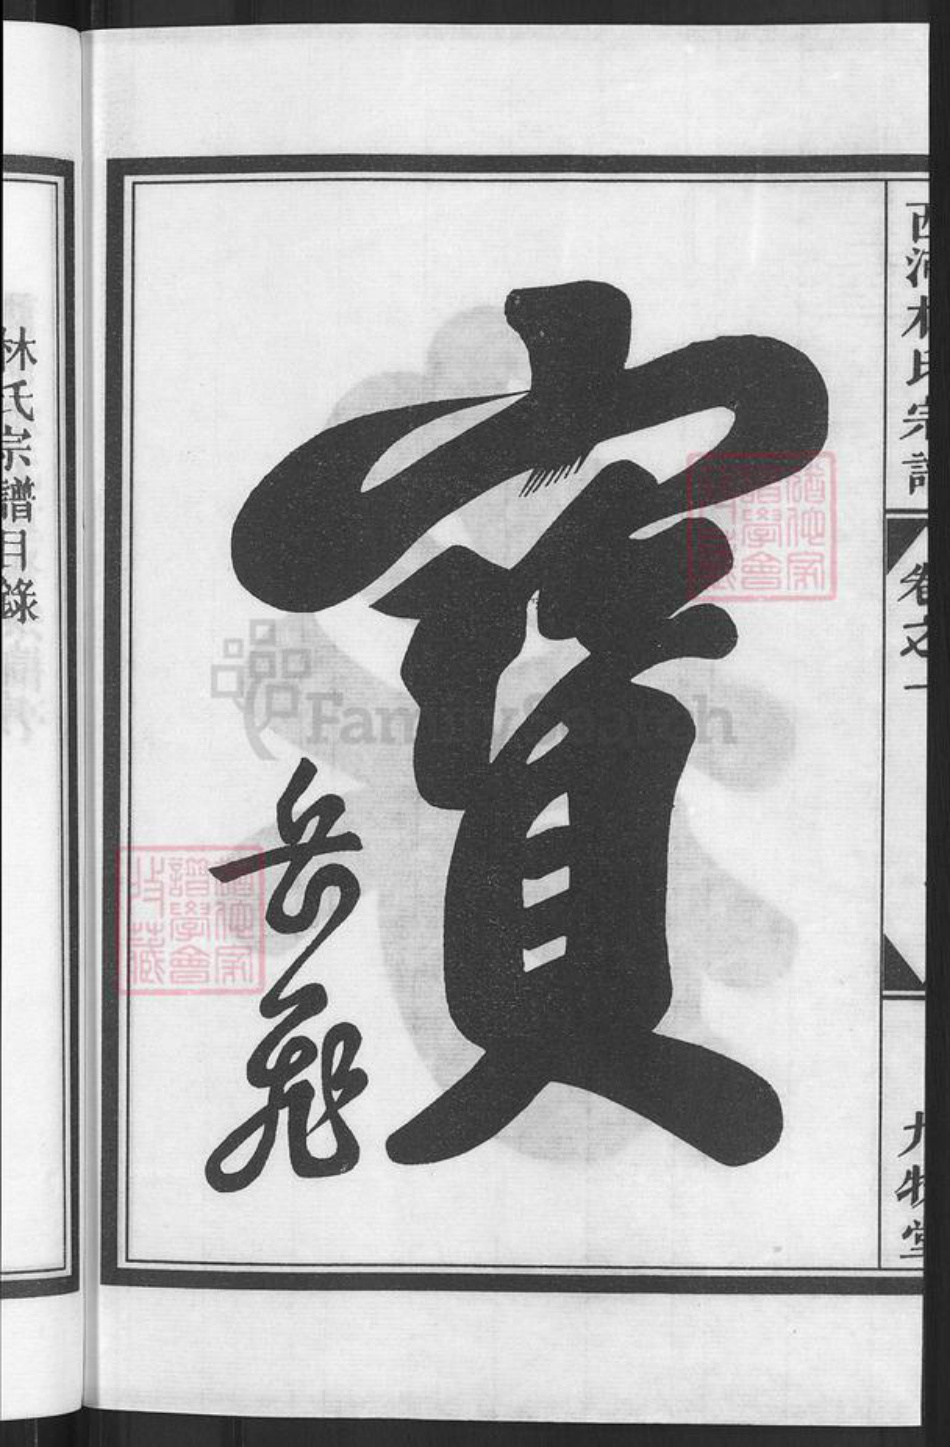 西河林氏宗譜
卷之一
九牧堂
寶
岳飛
林氏宗譜目錄
FamilySearch